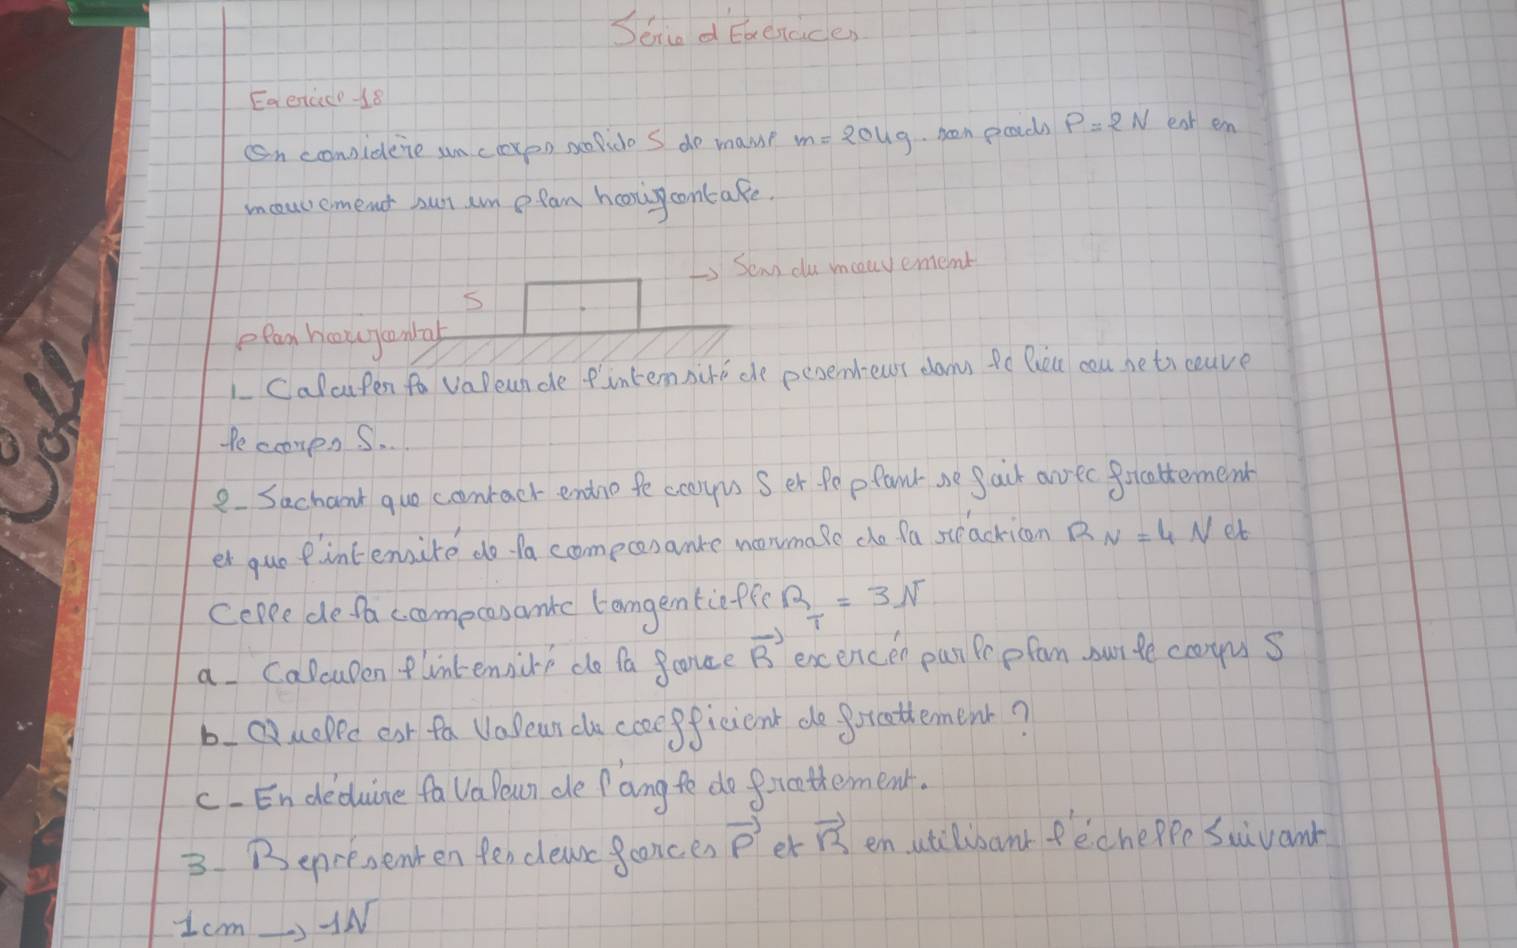 Série d'Exercices
Exercice 18
On considère un corps solide S de masse m = 204g. son poids P = 2 N est en
mouvement sur un plan horizontale.
→ Sens du mouvement
S
plan horizontal
1_ Calculer la valeur de l'intensité de pesenteur dans le lieu ou se trouve
le corps S...
2_ Sachant que contact entre le corps S et le plant se fait avec frottement
et que l'intensité de la composante normale de la réaction R_N = 4 N et
Celle de la composante tangentielle R_T = 3N
a_ Calculer l'intensité de la force R⃗ excercéé par le plan sur le corps S
b_ Quelle est la Valeur du coefficient de frottement ?
c_ En déduire la Valeur de l'angle de frottement.
3_ Représenter les deux forces P⃗ et R⃗ en utilisant l'échelle Suivant
1cm → 1N